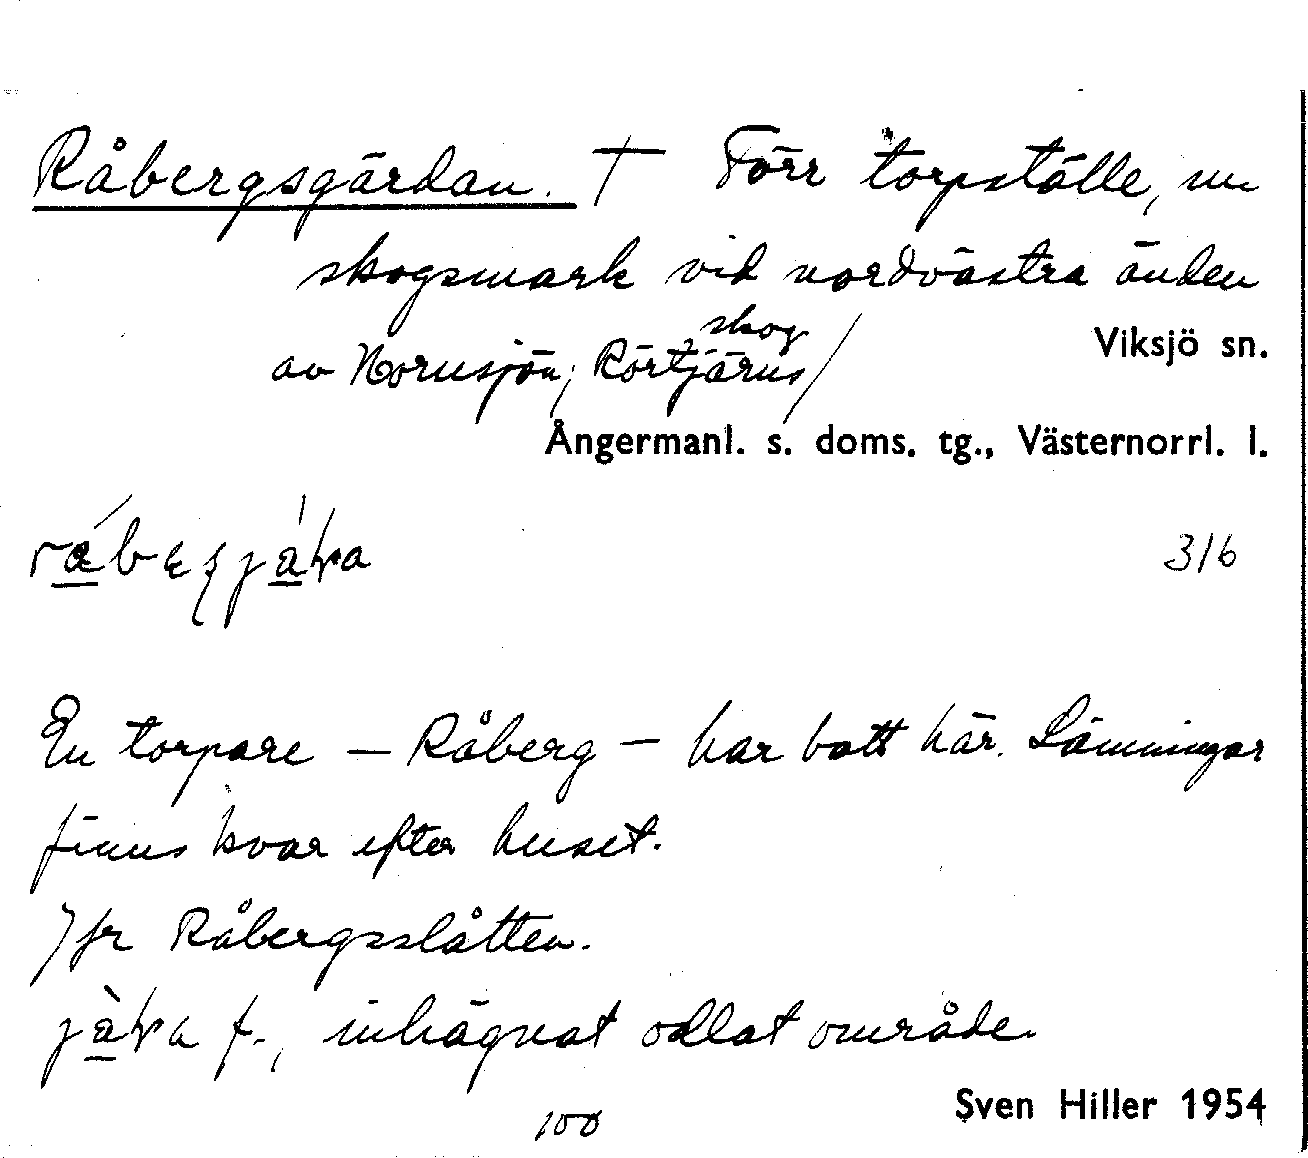 Råbergsgärdan. † Förr torpställe, nu
skogsmark vid nordvästra änden
av Nornsjön, Rörtjärns skog/
Viksjö sn.
Ångermanl. s. doms. tg., Västernorrl. l.
316
En torpare – Råberg – har bott här. Lämningar
finns kvar efter huset.
Jfr Råbergsslåtten.
f., inhägnat odlat område.
Sven Hiller 1954
100